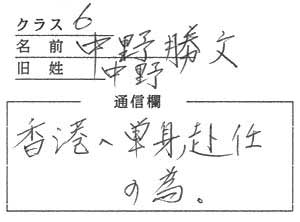 クラス 6
名前 中野勝文
旧姓 中野
通信欄
香港へ単身赴任
の為。